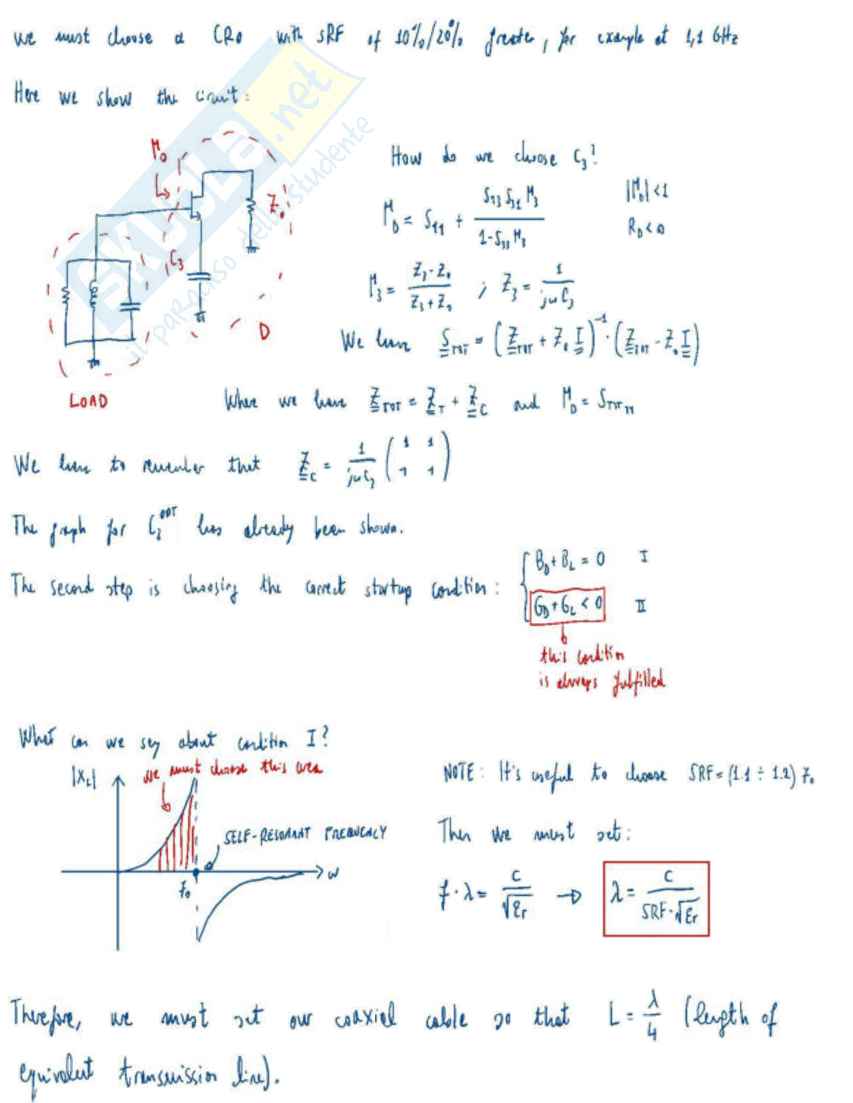 we must choose a CRO with SRF of 10%/20% greater, for example at 1,1 GHz
Here we show the circuit:
SKUOLA.net
il paradiso dello studente
Γ₀
Z₀
C₃
D
LOAD
How do we choose C₃?
Γ_D = S₁₁ + (S₁₃ S₃₁ Γ₃)/(1-S₃₃ Γ₃) |Γ_D|<1
R_D<0
Γ₃ = (Z₃-Z₀)/(Z₃+Z₀) ; Z₃ = 1/(jωC₃)
We have S_TOT = (Z_TOT + Z₀ I)⁻¹ · (Z_TOT - Z₀ I)
Where we have Z_TOT = Z_T + Z_C and Γ_D = S_TOT₁₁
We have to remember that Z_C = 1/(jωC₃) (1 1
1 1)
The graph for C₃^OPT has already been shown.
The second step is choosing the correct startup condition: { B_D + B_L = 0 I
G_D + G_L < 0 II
this condition
is always fulfilled
What can we say about condition I?
|X_L|
we must choose this area
SELF-RESONANT FREQUENCY
f₀
ω
NOTE: It's useful to choose SRF = (1.1 ÷ 1.2) f₀
Then we must set:
f · λ = c/√εr → λ = c/(SRF·√εr)
Therefore, we must set our coaxial cable so that L = λ/4 (length of
equivalent transmission line).